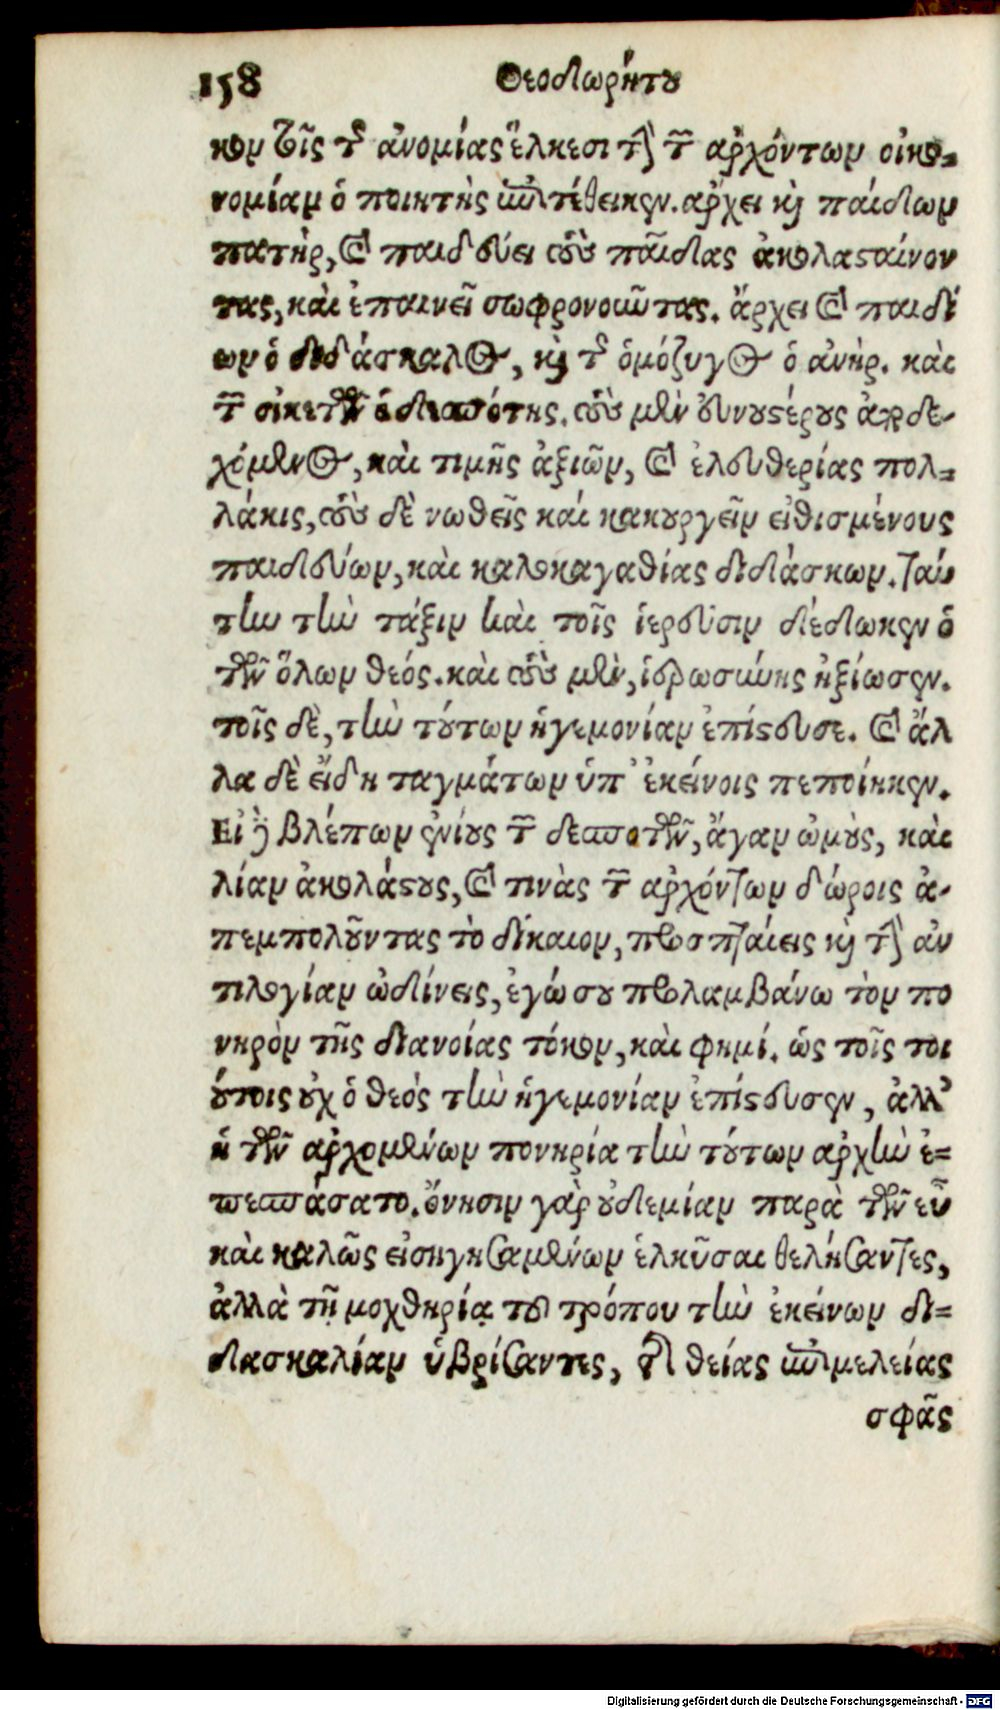 158 Θεοδωρήτου
κον τοῖς τῆς ἀνομίας ἕλκεσι τὴν τῶν ἀρχόντων οἰκο-
νομίαν ὁ ποιητὴς ἐπιτέθεικεν. ἄρχει καὶ παίδων
πατὴρ, καὶ παιδεύει τοὺς παῖδας ἀκολασταίνον
τας, καὶ ἐπαινεῖ σωφρονοῦντας. ἄρχει καὶ παιδί
ων ὁ διδάσκαλος, καὶ τῆς ὁμόζυγος ὁ ἀνήρ. καὶ
τῶν οἰκετῶν ὁ δεσπότης. τοὺς μὲν εὐνουστέρους ἀποδε-
χόμενος, καὶ τιμῆς ἀξιῶν, καὶ ἐλευθερίας πολ-
λάκις, τοὺς δὲ νωθεῖς καὶ κακουργεῖν εἰθισμένους
παιδεύων, καὶ καλοκαγαθίας διδάσκων. ταύ
την τὴν τάξιν καὶ τοῖς ἱερεῦσιν δέδωκεν ὁ
τῶν ὅλων θεός. καὶ τοὺς μὲν, ἱερωσύνης ἠξίωσεν.
τοῖς δὲ, τὴν τούτων ἡγεμονίαν ἐπίστευσε. καὶ ἄλ
λα δὲ εἴδη ταγμάτων ὑπ' ἐκείνοις πεποίηκεν.
Εἰ δὲ βλέπων ἐνίους τῶν δεσποτῶν, ἄγαν ὠμοὺς, καὶ
λίαν ἀκολάστους, καὶ τινὰς τῶν ἀρχόντων δώροις ἀ-
πεμπολοῦντας τὸ δίκαιον, προσπταίεις καὶ τὴν ἀν
τιλογίαν ὠδίνεις, ἐγώ σου προλαμβάνω τὸν πο
νηρὸν τῆς διανοίας τόκον, καὶ φημί. ὡς τοῖς τοι
ούτοις οὐχ ὁ θεὸς τὴν ἡγεμονίαν ἐπίστευσεν, ἀλλ'
ἡ τῶν ἀρχομένων πονηρία τὴν τούτων ἀρχὴν ἐ-
πεσπάσατο. ὄνησιν γὰρ οὐδεμίαν παρὰ τῶν εὖ
καὶ καλῶς εἰσηγησαμένων ἑλκῦσαι θελήσαντες,
ἀλλὰ τῇ μοχθηρίᾳ τοῦ τρόπου τὴν ἐκείνων δι-
δασκαλίαν ὑβρίσαντες, τῆς θείας ἐπιμελείας
σφᾶς
Digitalisierung gefördert durch die Deutsche Forschungsgemeinschaft - DFG